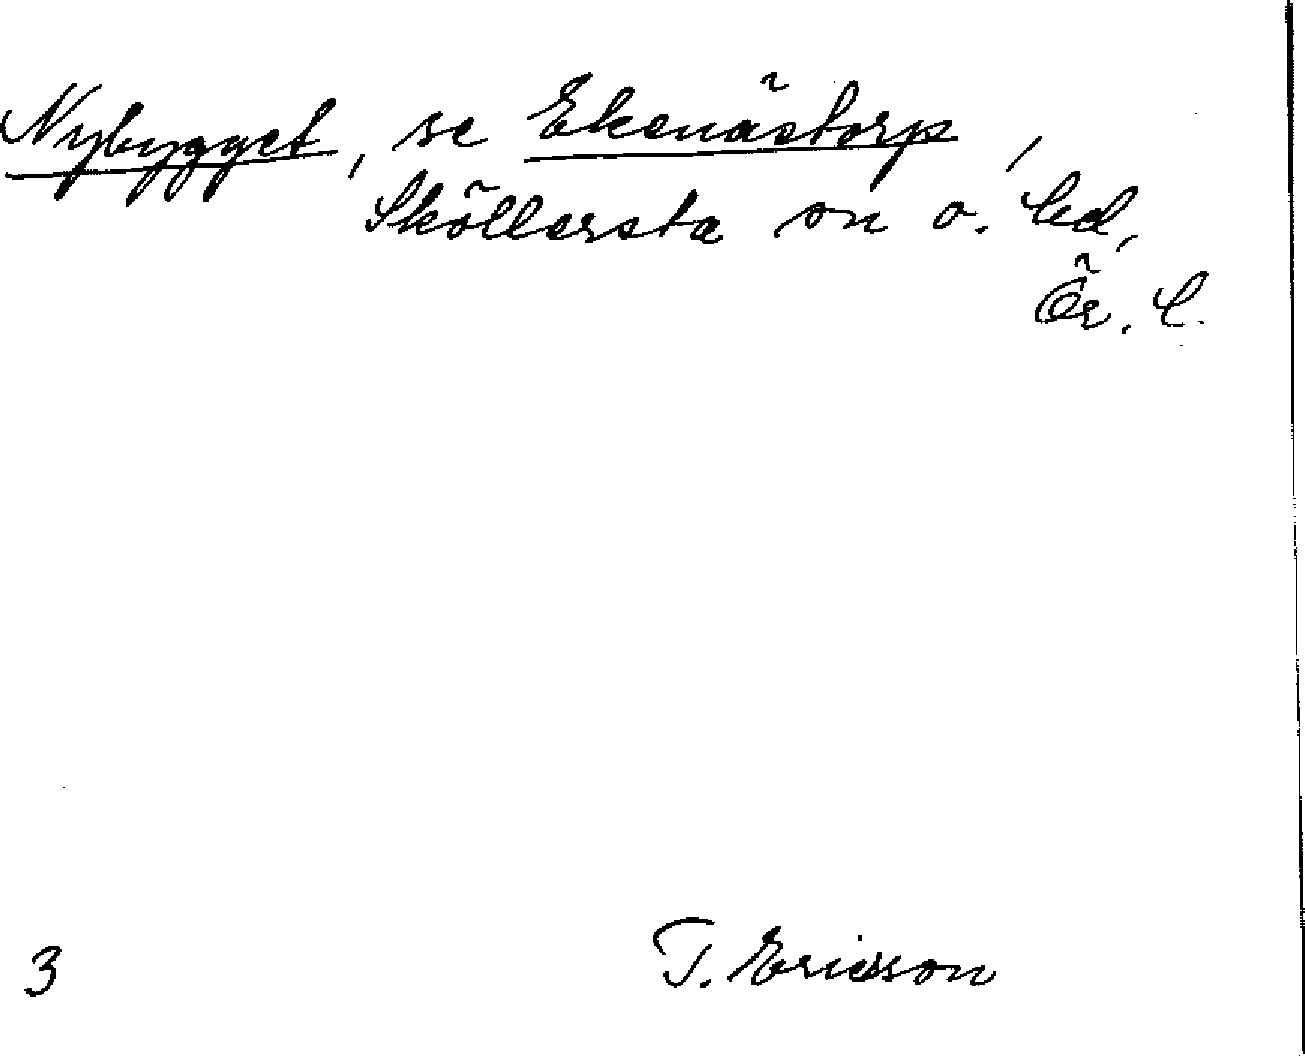 Nybygget, se Ekenästorp,
Sköllersta sn o. hd,
Ör. l.
3
T. Ericsson